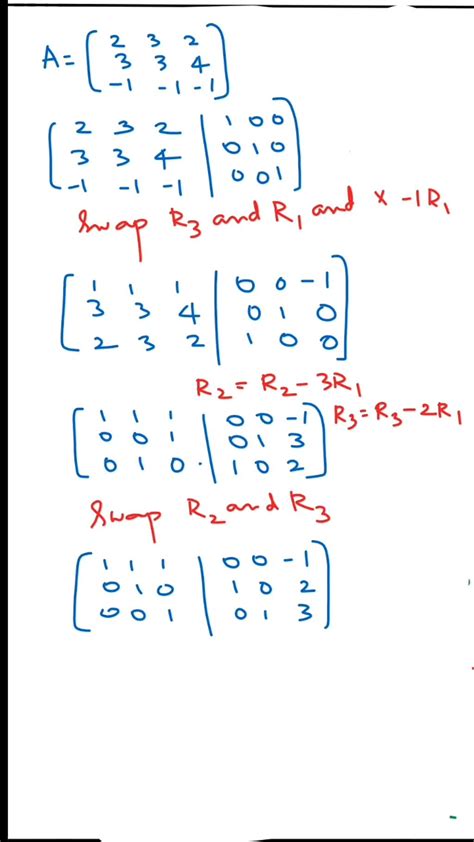 A = ( 2 3 2
3 3 4
-1 -1 -1 )
[ 2 3 2 | 1 0 0
3 3 4 | 0 1 0
-1 -1 -1 | 0 0 1 ]
Swap R3 and R1 and × -1R1
[ 1 1 1 | 0 0 -1
3 3 4 | 0 1 0
2 3 2 | 1 0 0 ]
R2 = R2 - 3R1
[ 1 1 1 | 0 0 -1 ) R3 = R3 - 2R1
0 0 1 | 0 1 3
0 1 0 . | 1 0 2 ]
Swap R2 and R3
[ 1 1 1 | 0 0 -1
0 1 0 | 1 0 2
0 0 1 | 0 1 3 ]